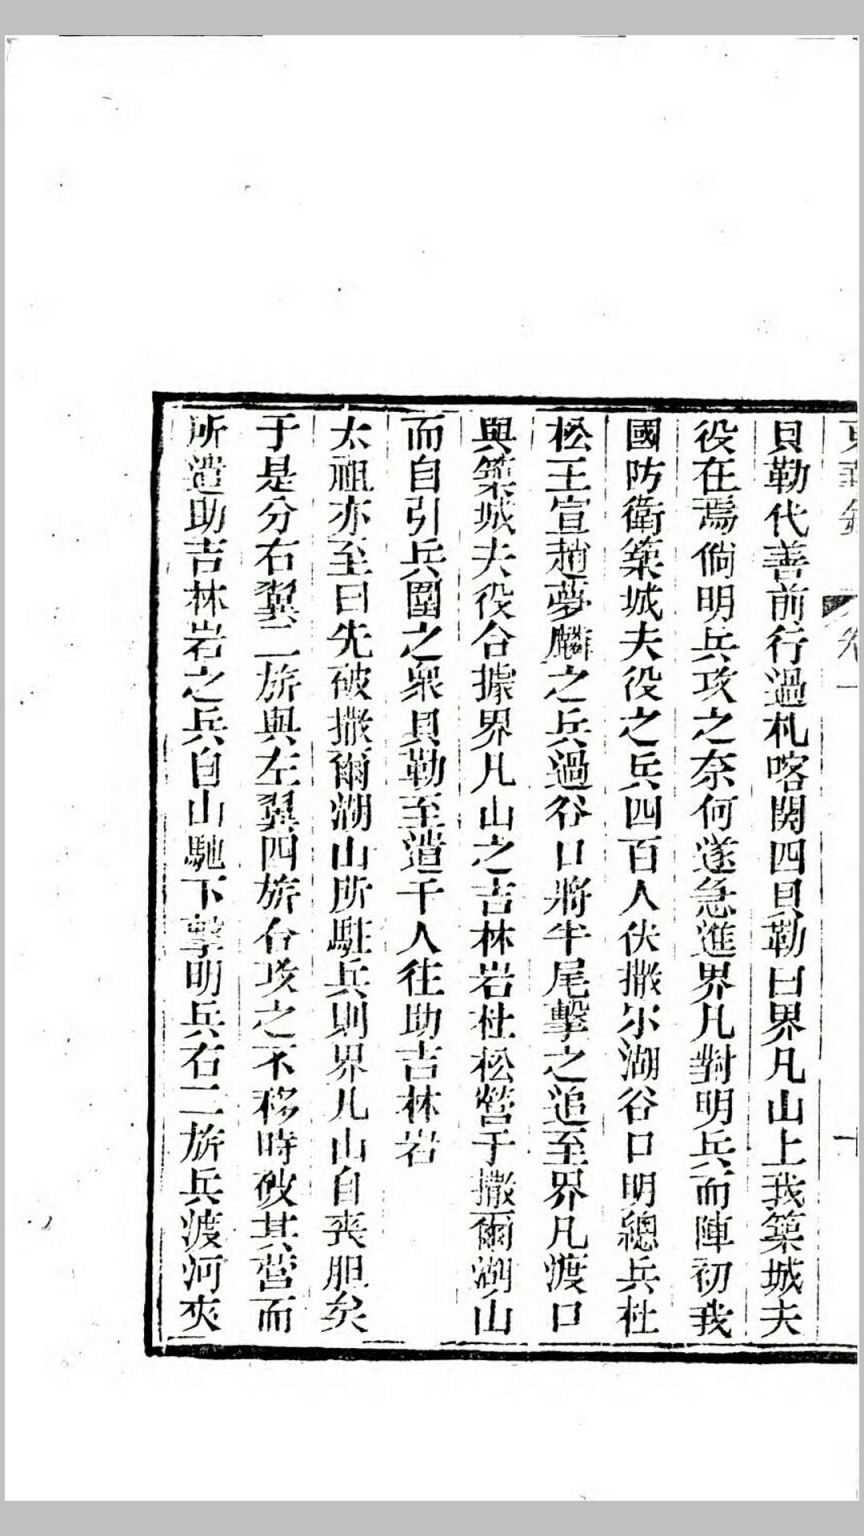 東華錄 卷一 十
貝勒代善前行過札喀關四貝勒曰界凡山上我築城夫
役在焉倘明兵攻之奈何遂急進界凡對明兵而陣初我
國防衛築城夫役之兵四百人伏撒尔湖谷口明總兵杜
松王宣趙夢麟之兵過谷口將半尾擊之追至界凡渡口
與築城夫役合據界凡山之吉林岩杜松營于撒爾湖山
而自引兵圍之衆貝勒至遣千人往助吉林岩
太祖亦至曰先破撒爾湖山所駐兵則界凡山自喪胆矣
于是分右翼二旂與左翼四旂合攻之不移時破其營而
所遣助吉林岩之兵自山馳下擊明兵右二旂兵渡河夾